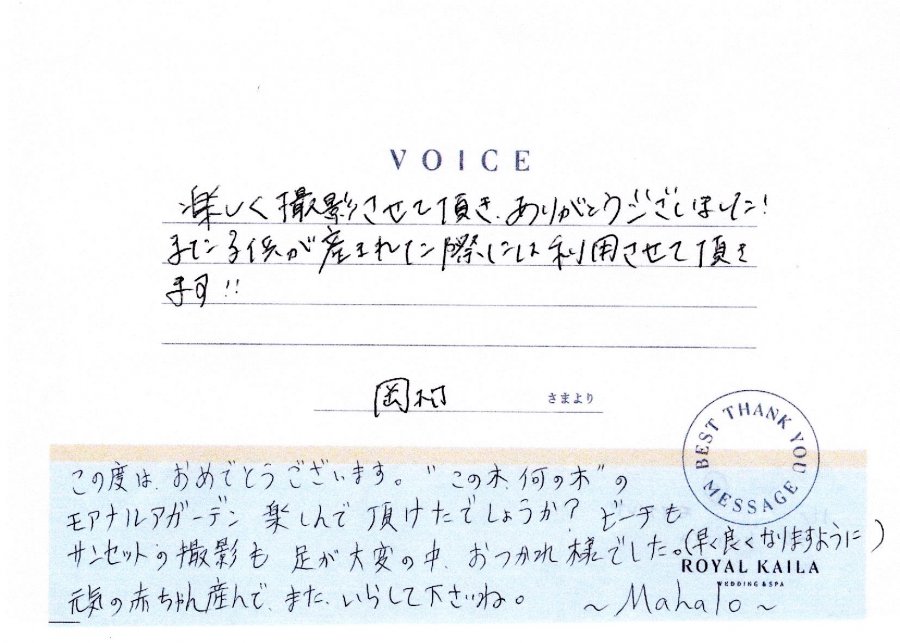 VOICE
楽しく撮影させて頂き、ありがとうございました!
また子供が産まれた際には利用させて頂き
ます!!
岡村 さまより
BEST THANK YOU MESSAGE
この度は、おめでとうございます。"この木何の木"の
モアナルアガーデン 楽しんで頂けたでしょうか? ビーチも
サンセットの撮影も 足が大変の中、おつかれ様でした。(早く良くなりますように)
ROYAL KAILA
WEDDING & SPA
元気の赤ちゃん産んで、また、いらして下さいね。 ~Mahalo~